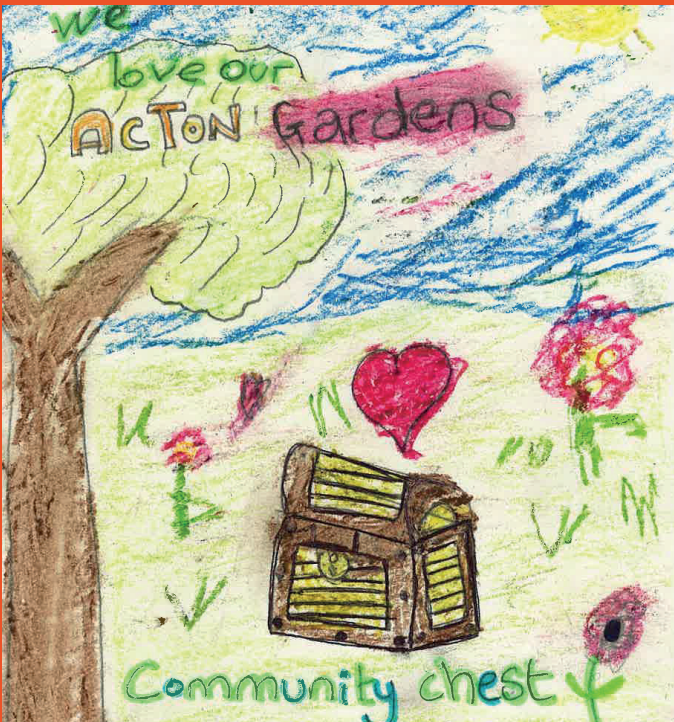 we
love our
ACTON Gardens
Community chest